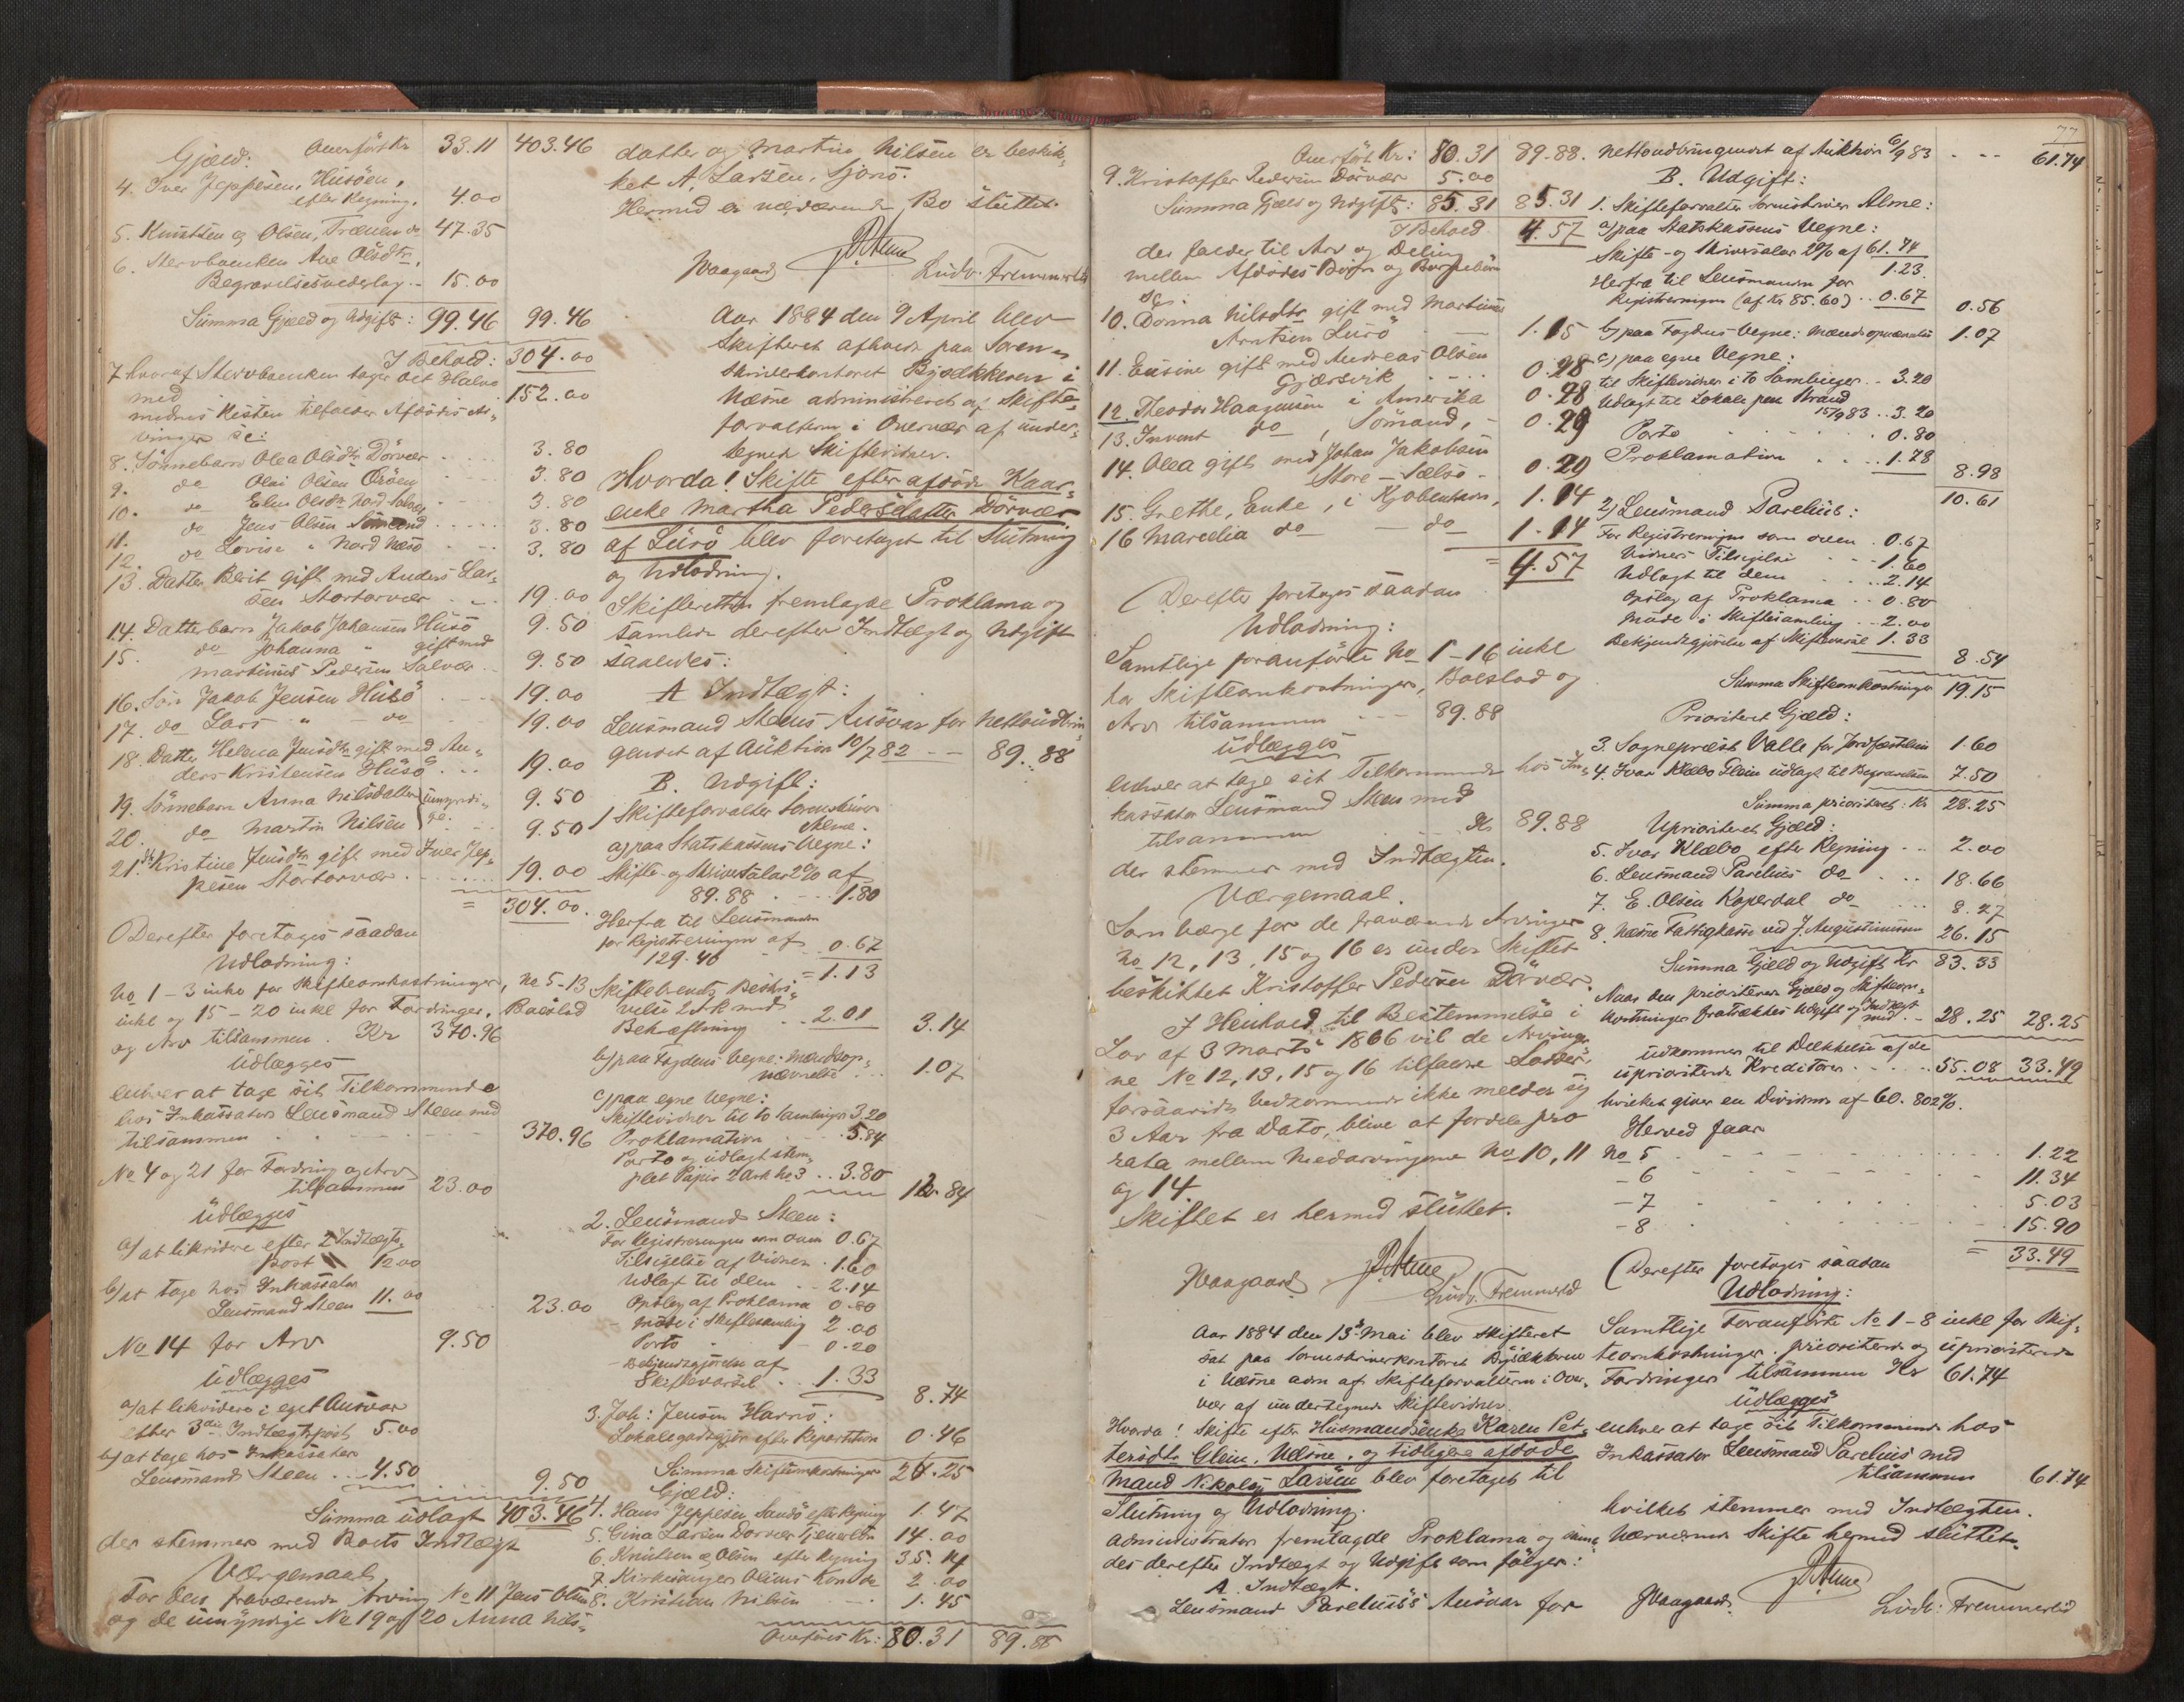 Gjæld: Overført Kr 33.11 403.46
4. Iver Jeppesen, Husöen,
efter Regning. 4.00
5. Knudtsen og Olsen, Trænen do 47.35
6. Stervboenken Ane Olsdtr.
Begravelsesvederlag .. 15.00
Summa Gjæld og Udgift: 99.46 99.46
I Behold: 304.00
7 hvoraf Stervboenken tager det Halve
med 152.00
medens Resten tilfalder Afdødes Ar-
vinger sc:
8. Sönnebarn Olea Olsdtr Dörvær 3.80
9. do Olai Olsen 3.80
10. do Elen Olsdtr Nord Solvær 3.80
11. do Jens Olsen Sömand 3.80
12. do Lovise " Nord Næsö 3.80
13. Datter Berit gift med Anders Lar-
sen Stortorvær 19.00
14. Datterbarn Jakob Johansen Husö 9.50
15. do Johanna " gift med
Martinus Pedersen Solvær .. 9.50
16. Sön Jakob Jensen Husö 19.00
17. do Lars " do 19.00
18. Datter Helena Jensdtr gift med An-
ders Kristensen Husö ... 19.00
19. Sönnebarn Anna Nilsdatter umyndi- 9.50
20. do Martin Nilsen ge. 9.50
21. Dtr Kristine Jensdtr gift med Iver Jep-
pesen Stortorvær 19.00
= 304.00.
Derefter foretoges saadan
Udlodning:
No 1-3 inkl for Skifteomkostninger, No 5-13
inkl og 15-20 inkl for Fordringer, Boeslod
og Arv tilsammen. Kr 370.96
udlægges
enhver at tage sit Tilkommende
hos Inkassator Lensmand Steen med
tilsammen 370.96
No 4 og 21 for Fordring og Arv
tilsammen 23.00
udlægges
a) at likvidere efter 2 Indtægts-
post 12.00
b) at tage hos Inkassator
Lensmand Steen 11.00 23.00
No 14 for Arv 9.50
udlægges
a) at likvidere i eget Ansvar
efter 3die Indtægtspost 5.00
b) at tage hos Inkassator
Lensmand Steen ... 4.50 9.50
Summa udlagt 403.46
der stemmer med Boets Indtægt
Værgemaal
For den fraværende Arving No 11 Jens Olsen
og de umyndige No 19 og 20 Anna Nils-
datter og Martin Nilsen er beskik-
ket A. Larsen, Sjonö.
Hermed er nærværende Bo sluttet.
JWaagaard Ludv. Fremmerlid
Aar 1884 den 9 April blev
Skifteret afholdt paa Soren-
skriverkontoret Bjødkkeren i
Næsne administreret af Skifte-
forvalteren i Overvær af under-
tegnede Skiftevidner.
Hvorda! Skifte efter afdöde Kaar-
enke Martha Pedersdatter Dörvær
af Lurö blev foretaget til Slutning
og Udlodning.
Skifteretten fremlagde Proklama og
samlede derefter Indtægt og Udgift
saaledes:
A Indtægt:
Lensmand Steens Ansvar for Nettoudbrin-
gendet af Auktion 10/7 82 -- 89.88
B. Udgift:
1 Skifteforvalter Sorenskriver
Alme.
a) paa Statskassens Vegne:
Skifte- og Skriversalær 2% af
89.88 ... 1.80
Herfra til Lensmanden
for Registreringen af
129.40 0.67
= 1.13
Skiftebrevets Beskri-
velse 2 Ark med
Bekræftning .. 2.01 3.14
b) paa Fogdens Vegne: Mandsop-
nævnelse ... 1.07
c) paa egne Vegne:
Skiftevidner til to Samlinger 3.20
Proklamation 5.84
Porto og udlagt stem-
plet Papir 2 Ark No 3 .. 3.80
12.84
2. Lensmand Steen:
For Registreringen som oven 0.67
Tilsigelse af Vidner . 1.60
Udlagt til dem .. 2.14
Opslag af Proklama 0.80
Möde i Skiftesamling 2.00
Porto 0.20
Bekjendtgjörelse af
Skiftevarsel .. 1.33 8.74
3. Joh: Jensen Harnö:
Lokalegodtgjør. efter Repartition 0.46
Summa Skifteomkostninger 26.25
Gjæld:
4. Hans Jeppesen Sandö efter Regning 1.47
5. Gina Larsen Dorvær Tjenerlön 14.00
6. Knutsen & Olsen efter Regning 35.14
7. Kirkesanger Olsens Kone do 2.00
8. Kristian Nilsen 1.45
Overföres Kr: 80.31 89.88
77
Overført Kr: 80.31 89.88.
9. Kristoffer Pedersen Dörvær 5.00
Summa Gjæld og Udgift: 85.31 85.31
I Behold 4.57
der falder til Arv og Deling
mellem Afdödes Börn og Börnebörn
sc:
10. Dorina Nilsdtr gift med Martinus
Arntsen Lurö 1.15
11. Eusine gift med Andreas Olsen
Gjærsvik .... 0.28
12. Theodor Haagensen i Amerika 0.28
13. Invent do, Sömand, - 0.29
14. Olea gift med Johan Jakobsen
Store-Sælsö - 0.29
15. Grethe, Enke, i Kjöbenhavn, 1.14
16 Maredia do - do 1.14
= 4.57
Derefter foretoges saadan
Udlodning:
Samtlige foranförte No 1-16 inkl
for Skifteomkostninger, Boeslod og
Arv tilsammen --- 89.88
udlægges
enhver at tage sit Tilkommende hos In-
kassator Lensmand Steen med
tilsammen Kr 89.88
der stemmer med Indtægten.
Værgemaal.
Som Værge for de fraværende Arvinger
No 12, 13, 15 og 16 er under Skiftet
beskikket Kristoffer Pedersen Dörvær.
I Henhold til Bestemmelse i
Lov af 3 Marts 1866 vil de Arvinger-
ne No 12, 13, 15 og 16 tilfaldne Lodder,
forsaavidt Vedkommende ikke melder sig
3 Aar fra Dato, blive at fordele pro
rata mellem Medarvingerne No 10, 11
og 14.
Skiftet er hermed sluttet.
JWaagaard Ludv. Fremmerlid
Aar 1884 den 13de Mai blev Skifteret
sat paa Sorenskriverkontoret Bjødkkeren
i Næsne adm af Skifteforvalteren i Over-
vær af undertegnede Skiftevidner.
Hvorda! Skifte efter Husmandsenke Karen Pet-
tersdtr Glein, Næsne, og tidligere afdöde
Mand Nikolaj Larsen blev foretaget til
Slutning og Udlodning.
Administrator fremlagde Proklama og
des derefter Indtægt og Udgift som fölger:
A. Indtægt.
Lensmand Parelius's Ansvar for
Nettoudbringendet af Auktion 6/9 83 ... 61.74
B. Udgift:
1. Skifteforvalter Sorenskriver Alme:
a) paa Statskassens Vegne:
Skifte- og Skriversalær 2% af 61.74
1.23.
Herfra til Lensmanden for
Registreringen (af Kr 85.60) .. 0.67 0.56
b) paa Fogdens Vegne: Mandsopnævnelse 1.07
c) paa egne Vegne:
til Skiftevidner i to Samlinger .. 3.20
Udlagt til Lokale paa Strand
15/9 83 .. 3.20
Porto 0.80
Proklamation ... 1.78 8.98
10.61
2) Lensmand Parelius:
For Registreringen som oven . 0.67
Vidners Tilsigelse 1.60
Udlagt til dem .. 2.14
Opslag af Proklama .. 0.80
Möde i Skiftesamling .. 2.00
Bekjendtgjörelse af Skiftevarsel 1.33
8.54
Summa Skifteomkostninger 19.15
Prioriteret Gjæld:
3. Sognepræst Valle for Jordfæstelsen 1.60
4. Ivar Klæbo Glein udlagt til Begravelsen 7.50
Summa prioriteret: Kr 28.25
Uprioriteret Gjæld:
5. Ivar Klæbo efter Regning .. 2.00
6. Lensmand Parelius do ... 18.66
7. E. Olsen Koperdal do .... 8.27
8. Næsne Fattigkasse ved J. Augustinussen 26.15
Summa Gjæld og Udgift Kr 83.33
Naar den prioriterede Gjæld og Skifteom-
kostninger fratrækkes Udgift og Indtægt
med .. 28.25 28.25
udkommer til Dækkelse af de
uprioriterede Kreditorer 55.08 33.49
hvilket giver en Dividende af 60.802%.
Herved faar
No 5 1.22
- 6 11.34
- 7 5.03
- 8 15.90
= 33.49
Derefter foretoges saadan
Udlodning:
Samtlige Foranförte No 1-8 inkl for Skif-
teomkostninger, prioriterede og uprioriterede
Fordringer tilsammen Kr 61.74
udlægges
enhver at tage sit Tilkommende hos
Inkassator Lensmand Parelius med
tilsammen 61.74
hvilket stemmer med Indtægten.
Nærværende Skifte hermed sluttet.
JWaagaard. Ludv: Fremmerlid